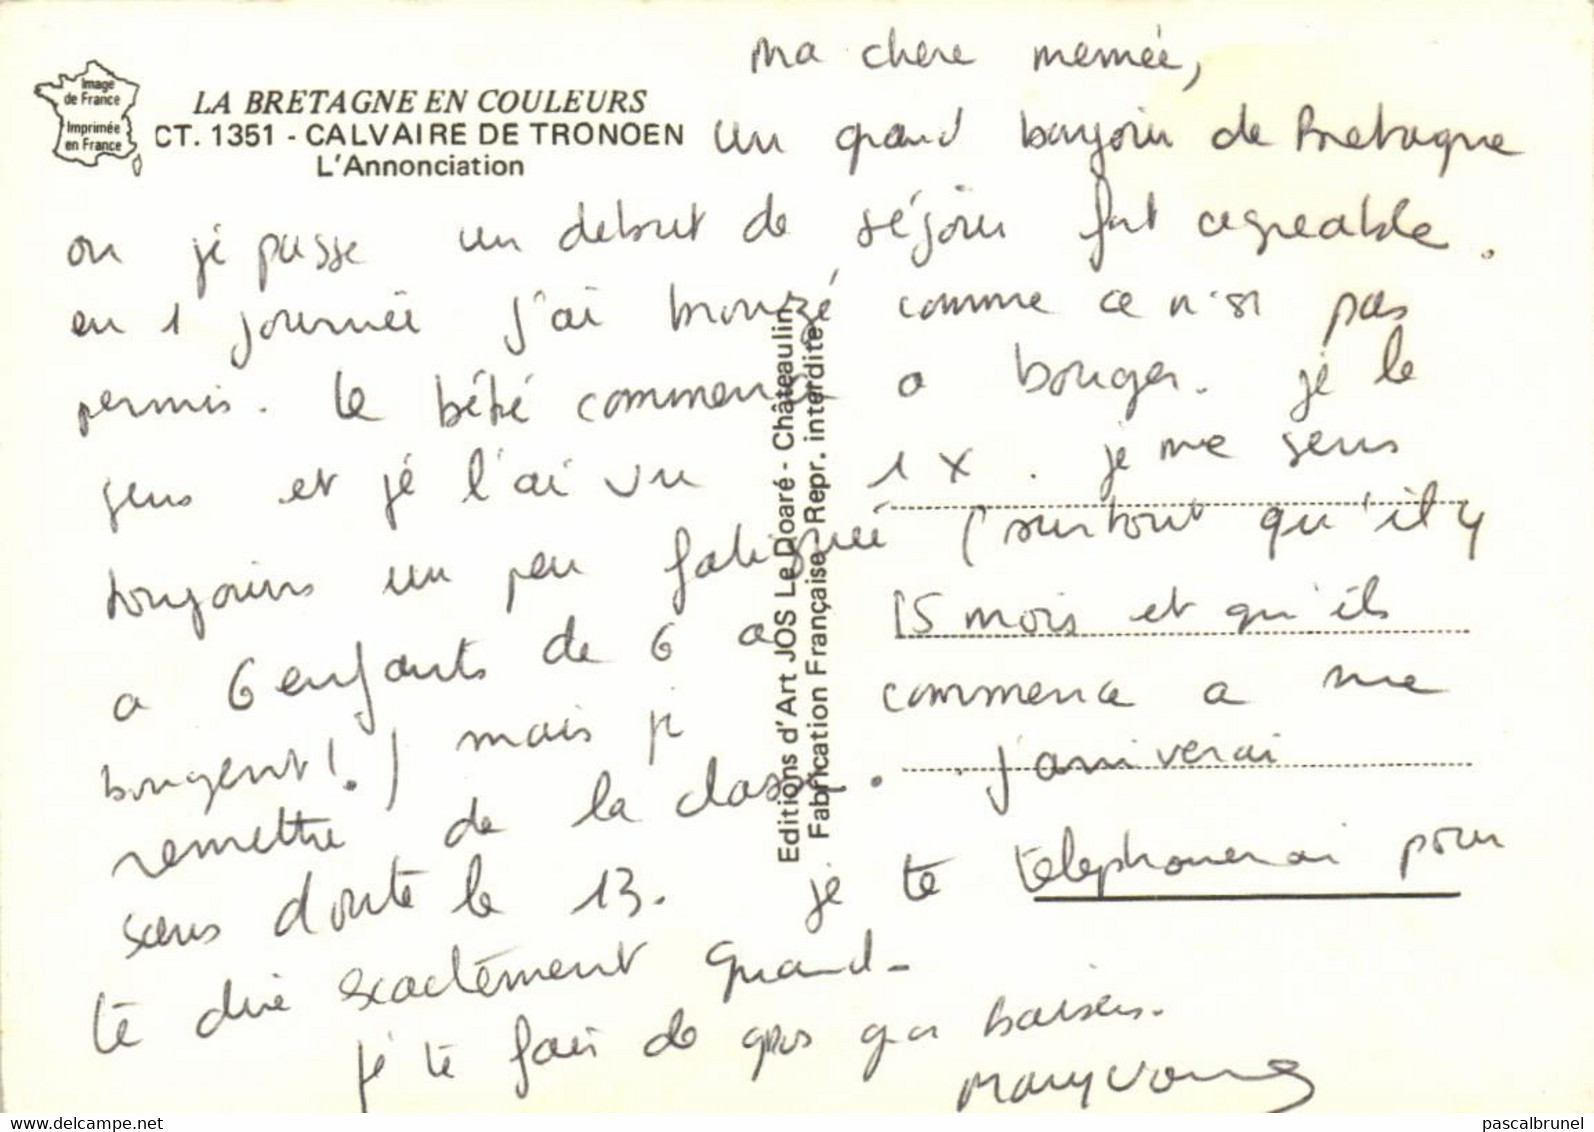 Image
de France
Imprimée
en France
LA BRETAGNE EN COULEURS
CT. 1351 - CALVAIRE DE TRONOEN
L'Annonciation
ma chere memée,
un grand bonjour de Bretagne
ou je passe un debut de séjour fort agreable.
en 1 journée j'ai bronzé comme ce n'est pas
permis. le bébé commence a bouger. je le
sens et je l'ai vu 1 x. je me sens
toujours un peu fatiguée (surtout qu'il y
a 6 enfants de 6 a 15 mois et qu'ils
bougent!.) mais je commence a me
remettre de la classe. j'arriverai
sans doute le 13. je te telephonerai pour
te dire exactement quand-
je te fais de gros gros baisers.
Maryvonne
Editions d'Art JOS Le Doaré - Châteaulin
Fabrication Française Repr. interdite
https://www.delcampe.net
pascalbrunel